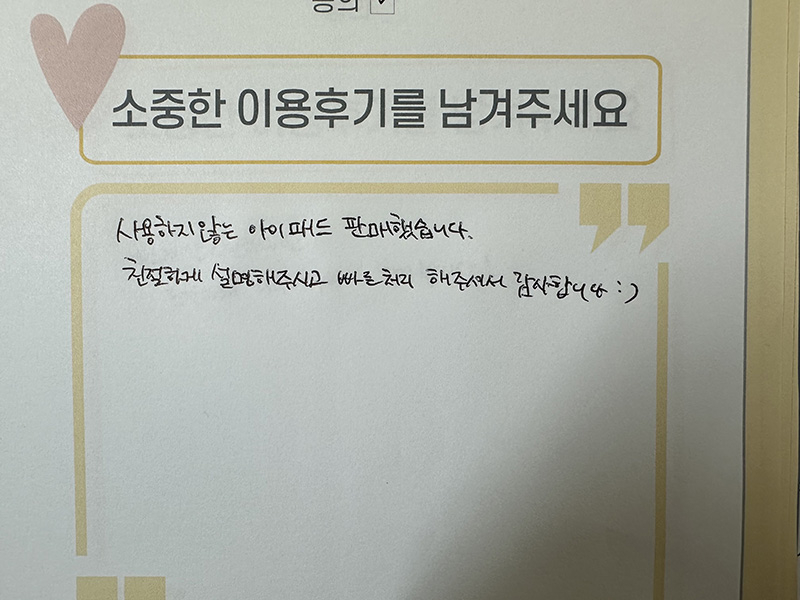 동의 ✓
소중한 이용후기를 남겨주세요
사용하지않는 아이패드 판매했습니다.
친절하게 설명해주시고 빠른처리 해주셔서 감사합니다 :)